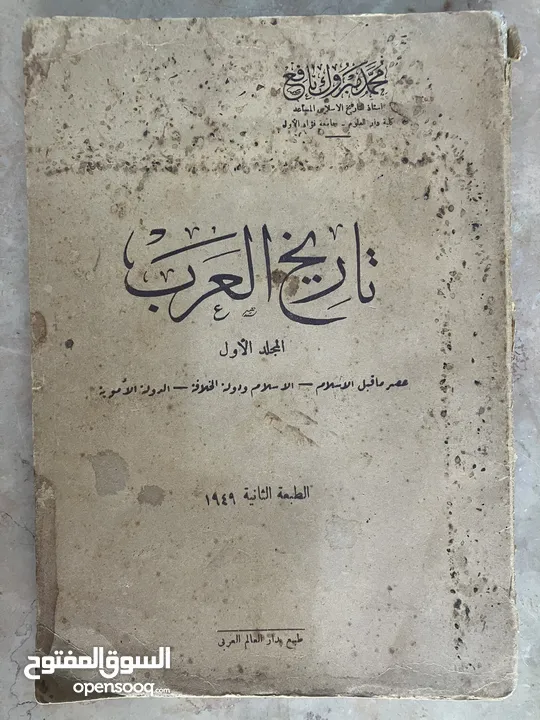 محمد مبروك نافع
استاذ التاريخ الاسلامى المساعد
كلية دار العلوم - جامعة فؤاد الأول
تاريخ العرب
المجلد الأول
عصر ما قبل الاسلام - الاسلام ودولة الخلافة - الدولة الأموية
الطبعة الثانية ١٩٤٩
طبع بدار العالم العربى
السوق المفتوح
opensooq.com